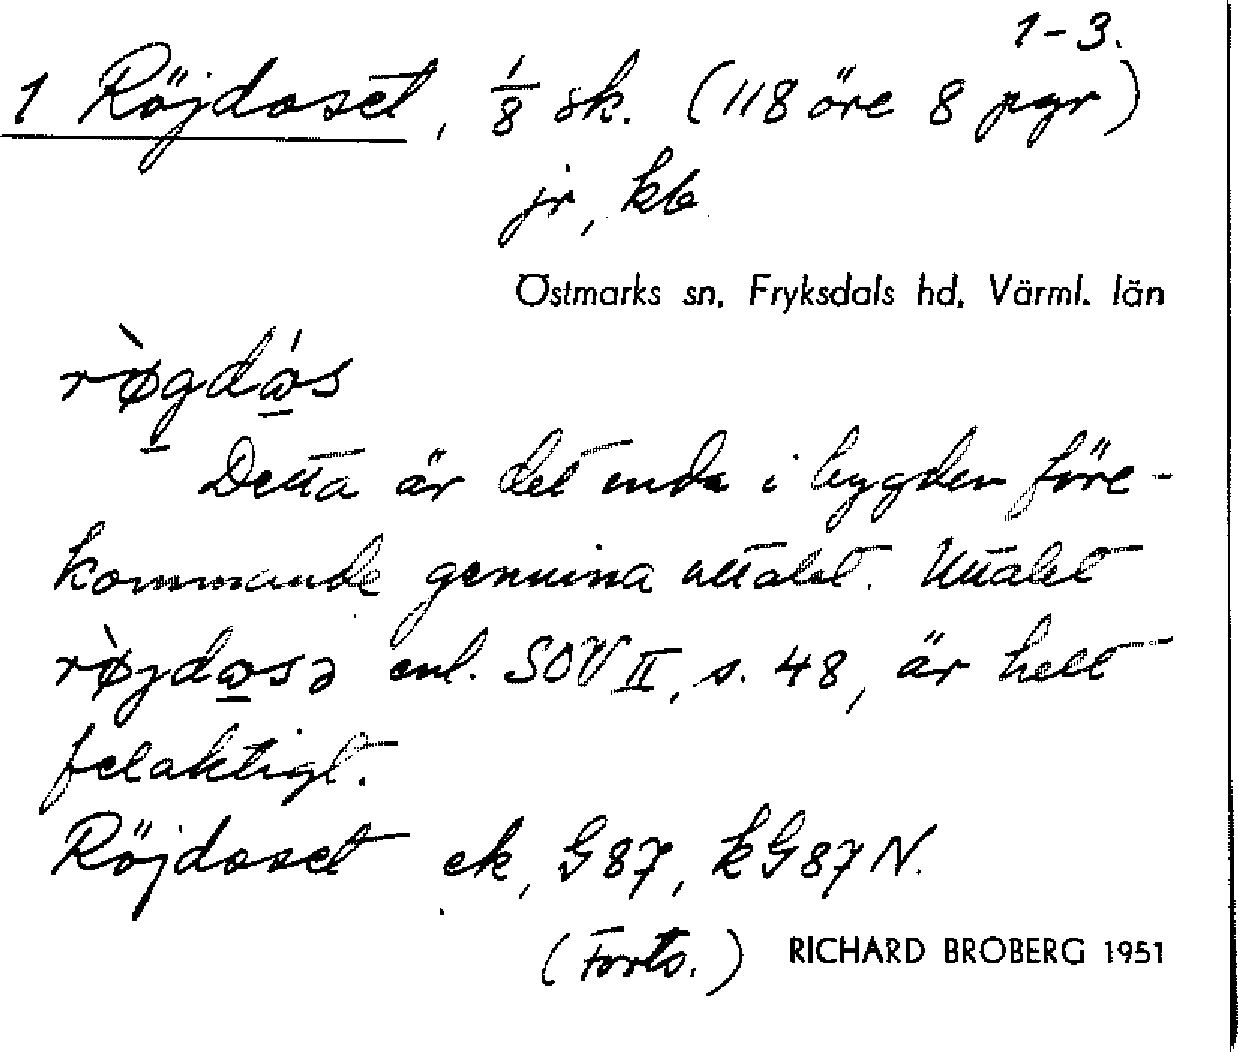 1-3.
1 Röjdoset, 1/8 sk. (118 öre 8 pgr)
jr, kb
Östmarks sn, Fryksdals hd, Värml. län
Detta är det enda i bygden före-
kommande genuina uttalet. Uttalet
enl. SOV II, s. 48, är helt
felaktigt.
Röjdoset ek, G87, kG87N.
(Forts.) RICHARD BROBERG 1951